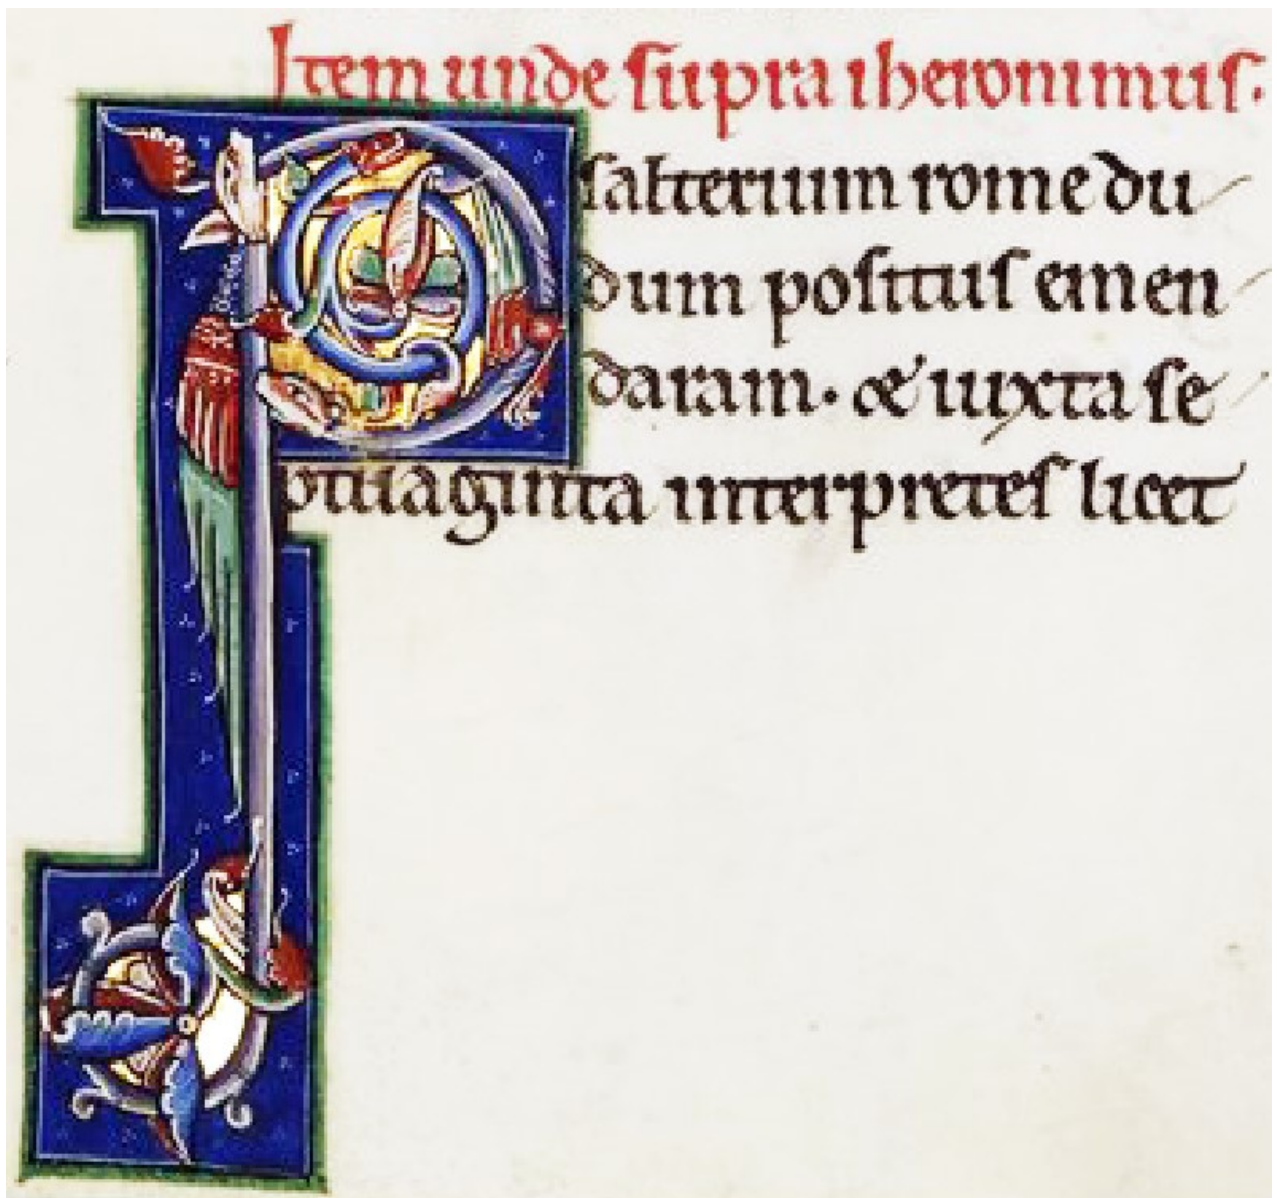 Item unde supra iheronimus.
Psalterium rome du
dum positus emen
daram. & iuxta se
ptuaginta interpretes licet